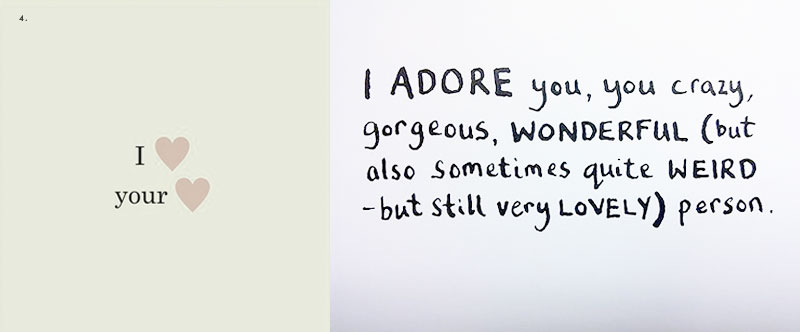 4.
I
your
I ADORE you, you crazy,
gorgeous, WONDERFUL (but
also sometimes quite WEIRD
-but still very LOVELY) person.